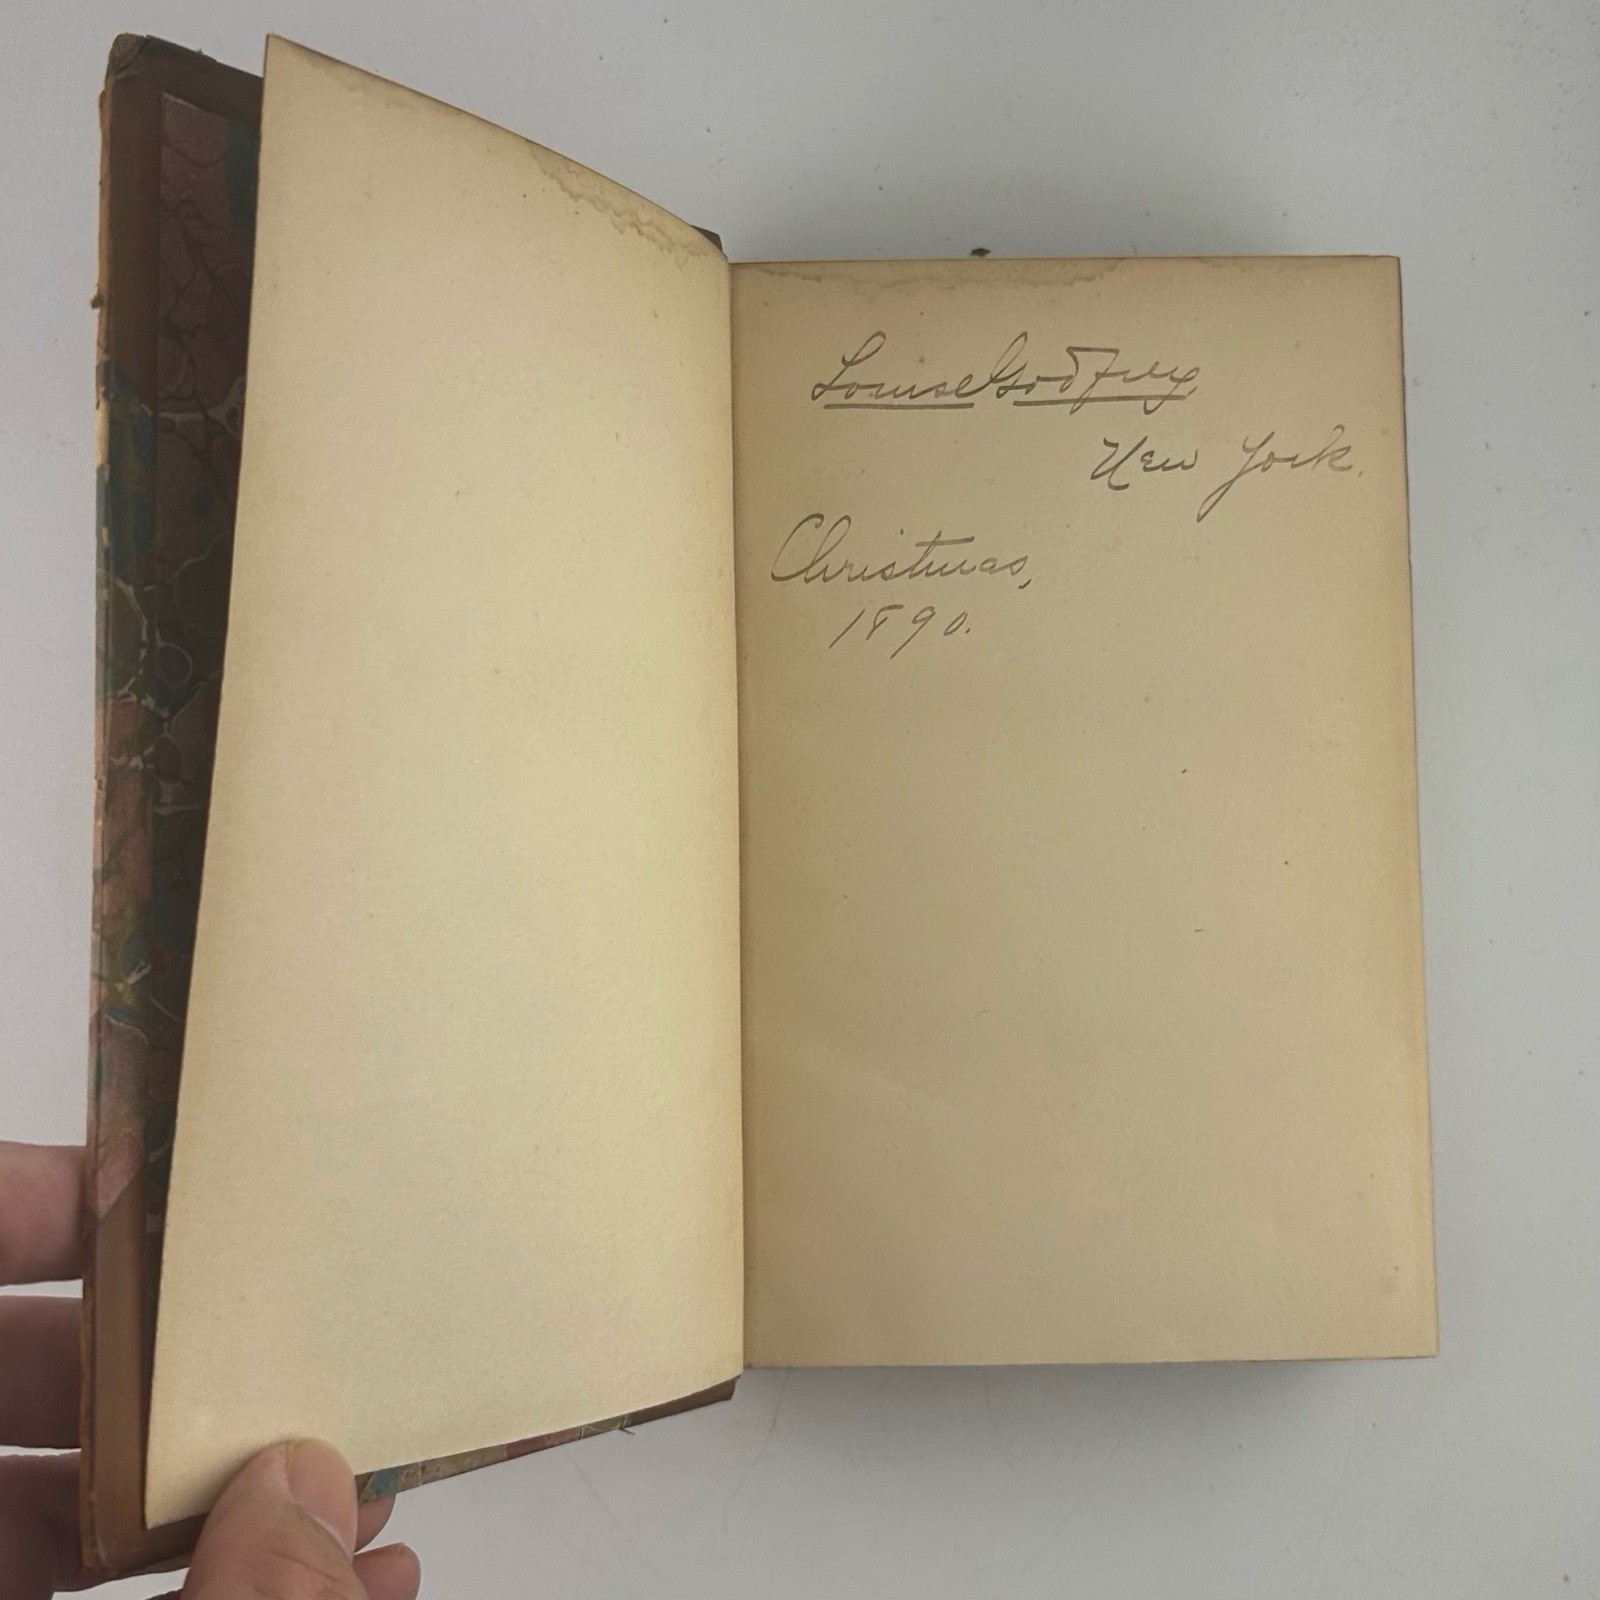 Louise Godfrey
New York.
Christmas,
1890.